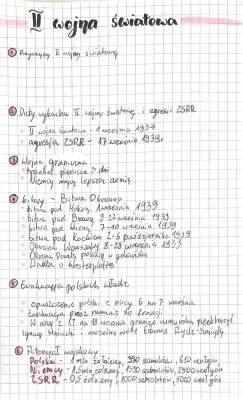 II wojna światowa
Przyczyny II wojny światowej
Daty wybuchu II wojny światowej i agresji ZSRR
II wojna światowa - 1 września 1939
agresja ZSRR - 17 września 1939r.
Wojna graniczna
pierwsze 3 dni
Niemcy mają lepszą armię
bitwy - Bitwa Obronna
bitwa pod Mokrą 1 września 1939
bitwa pod Bzurą 9-22 wrzesień 1939
bitwa pod Wizną 7-10 września 1939
bitwa pod Kockiem 2-6 października 1939
Obrona Warszawy 8-28 września 1939
Obrona Poczty polskiej w gdańsku
Walka o Westerplatte
Ewakuacja polskich władz
opuszczenie polski z nocy 6 na 7 wrzesień
Ewakuacja przez rumunię do francji
W nocy z 17 na 18 września granicę rumuńską przekroczył
Ignacy Mościcki i marszałek wódz Edward Rydz-Śmigły
Potencjał wojskowy
Polska - 1 mln żołnierzy, samolotów, czołgów
Niemcy - żołnierzy, samolotów, czołgów
ZSRR - 0,5 żołnierzy, samolotów, czołgów